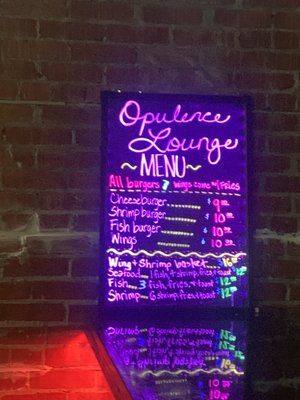 Opulence
Lounge
~MENU~
All burgers & wings come w/ fries
Cheeseburger........ $ 9.00
Shrimp burger........ $ 10.00
Fish burger........ $ 10.00
Wings ........ $ 10.00
Wing + Shrimp basket
Seafood... 1 fish, 4 shrimp, fries, + toast
Fish... 3 fish, fries, + toast
Shrimp... 6 shrimp, fries, + toast